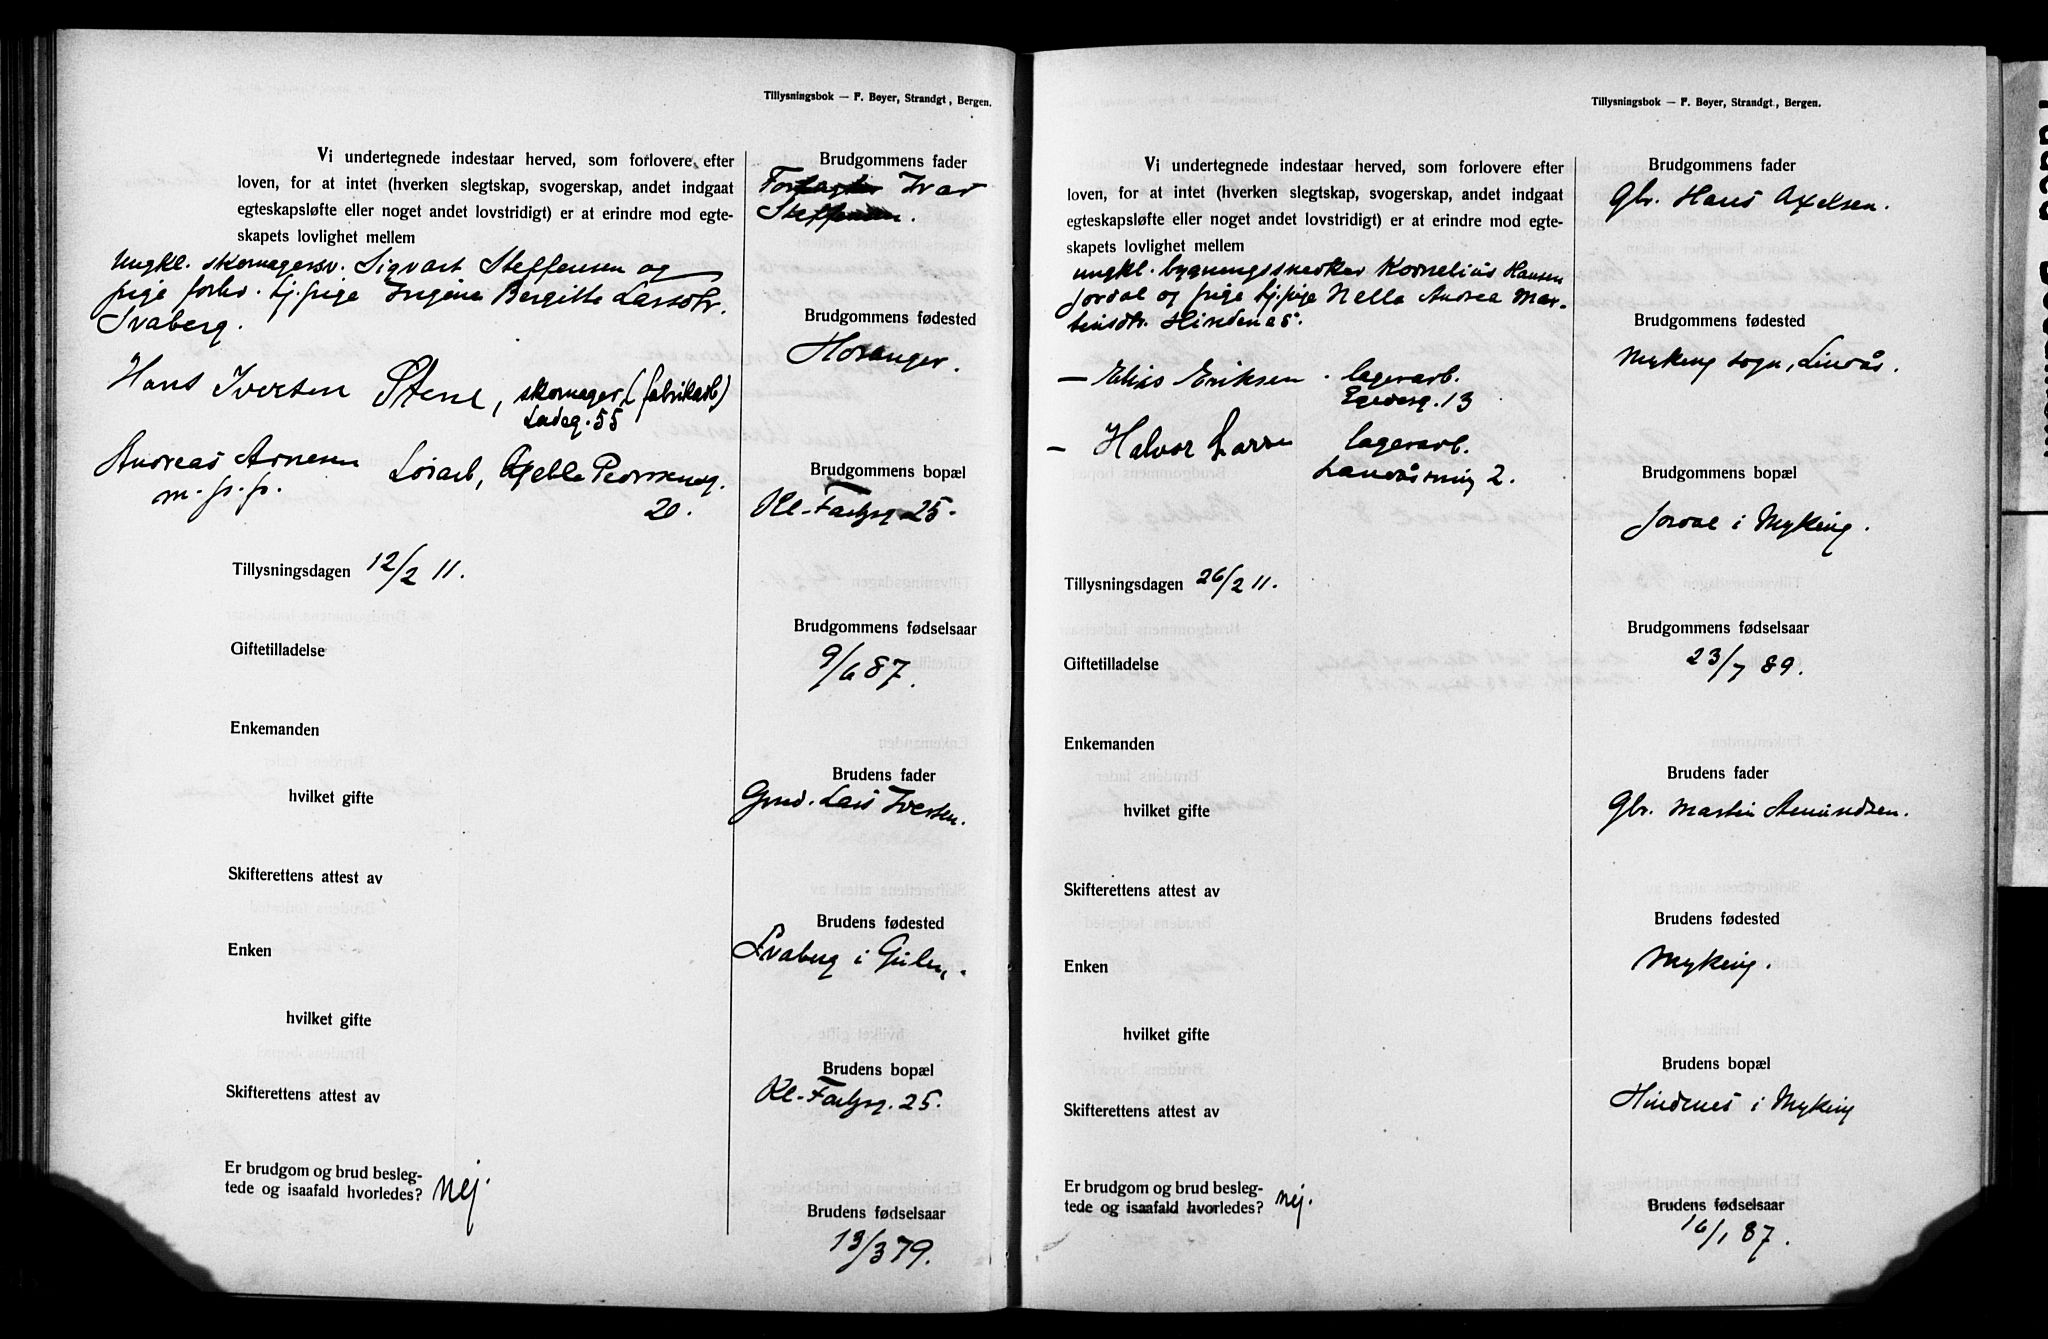 Tillysningsbok — F. Beyer, Strandgt., Bergen.
Vi undertegnede indestaar herved, som forlovere efter
loven, for at intet (hverken slegtskap, svogerskap, andet indgaat
egteskapsløfte eller noget andet lovstridigt) er at erindre mod egte-
skapets lovlighet mellem
Ungkl. skomagersv. Sigvart Steffensen og
pige forhv. tj. pige Ingina Bergitte Larsdtr.
Svaberg.
Hans Iversen Stene, skomager, (fabrikarb)
Ladeg. 55
Andreas Arnesen Løsarb,
m. p. p.
20.
Tillysningsdagen 12/2 11.
Giftetilladelse
Enkemanden
hvilket gifte
Skifterettens attest av
Enken
hvilket gifte
Skifterettens attest av
Er brudgom og brud besleg-
tede og isaafald hvorledes? Nej.
Brudgommens fader
Forpagter Ivar
Steffensen.
Brudgommens fødested
Hosanger.
Brudgommens bopæl
Kl. Farhsg. 25.
Brudgommens fødselsaar
9/6 87.
Brudens fader
Gmd. Lars Iversen.
Brudens fødested
Svaberg i Gulen.
Brudens bopæl
Kl. Farhsg. 25.
Brudens fødselsaar
13/3 79.
Tillysningsbok — F. Beyer, Strandgt., Bergen.
Vi undertegnede indestaar herved, som forlovere efter
loven, for at intet (hverken slegtskap, svogerskap, andet indgaat
egteskapsløfte eller noget andet lovstridigt) er at erindre mod egte-
skapets lovlighet mellem
ungkl. bygningssnedker Kornelius Hansen
Jordal og pige tj. pige Nella Andrea Mar-
tinsdtr. Hindenes.
— Elias Eriksen. lagerarb.
Egedesg. 13
— Halvor Larsen lagerarb.
Landåsming 2.
Tillysningsdagen 26/2 11.
Giftetilladelse
Enkemanden
hvilket gifte
Skifterettens attest av
Enken
hvilket gifte
Skifterettens attest av
Er brudgom og brud besleg-
tede og isaafald hvorledes? Nej.
Brudgommens fader
Gbr. Hans Axelsen.
Brudgommens fødested
Myking sogn, Lindås.
Brudgommens bopæl
Jordal i Myking.
Brudgommens fødselsaar
23/7 89.
Brudens fader
Gbr. Martin Amundsen.
Brudens fødested
Myking.
Brudens bopæl
Hindenes i Myking
Brudens fødselsaar
16/1 87.